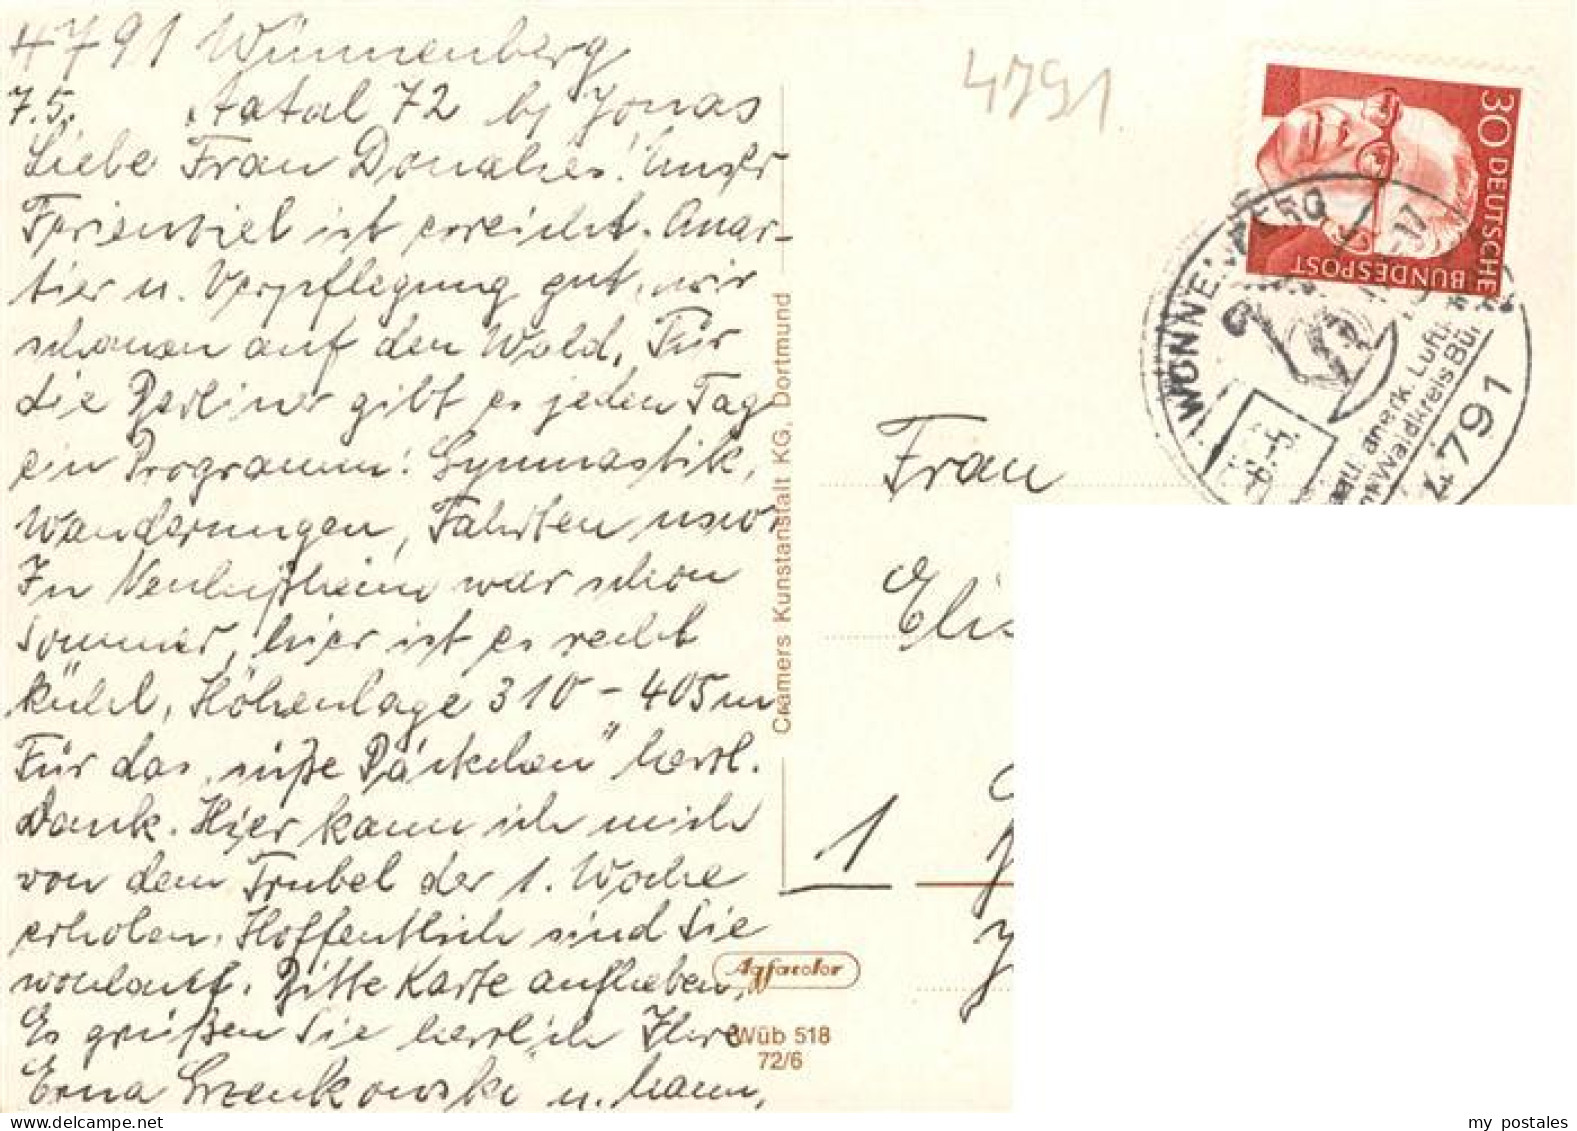 4791 Wünnenberg
7.5. Aatal 72 bj Jonas
Liebe Frau Donalies! Unser
Ferienziel ist erreicht. Quar-
tier u. Verpflegung gut, wir
schauen auf den Wald. Für
die Berliner gibt es jeden Tag
ein Programm: Gymnastik,
Wanderungen, Fahrten usw.
In war schon
Sommer, hier ist es recht
kühl, Höhenlage 310 - 405 m
Für das "süße Päckchen" herzl.
Dank. Hier kann ich mich
von dem Trubel der 1. Woche
erholen. Hoffentlich sind Sie
wohlauf. Bitte Karte aufheben,
Es grüßen Sie herzlich Ihre
Erna u. Mann,
Cramers Kunstanstalt KG, Dortmund
Agfacolor
Wüb 518
72/6
4791.
30 DEUTSCHE
BUNDESPOST
WÜNNENBERG
anerk. Luftk.
Waldkreis Bür
4791
Frau
Elis
1
my postales